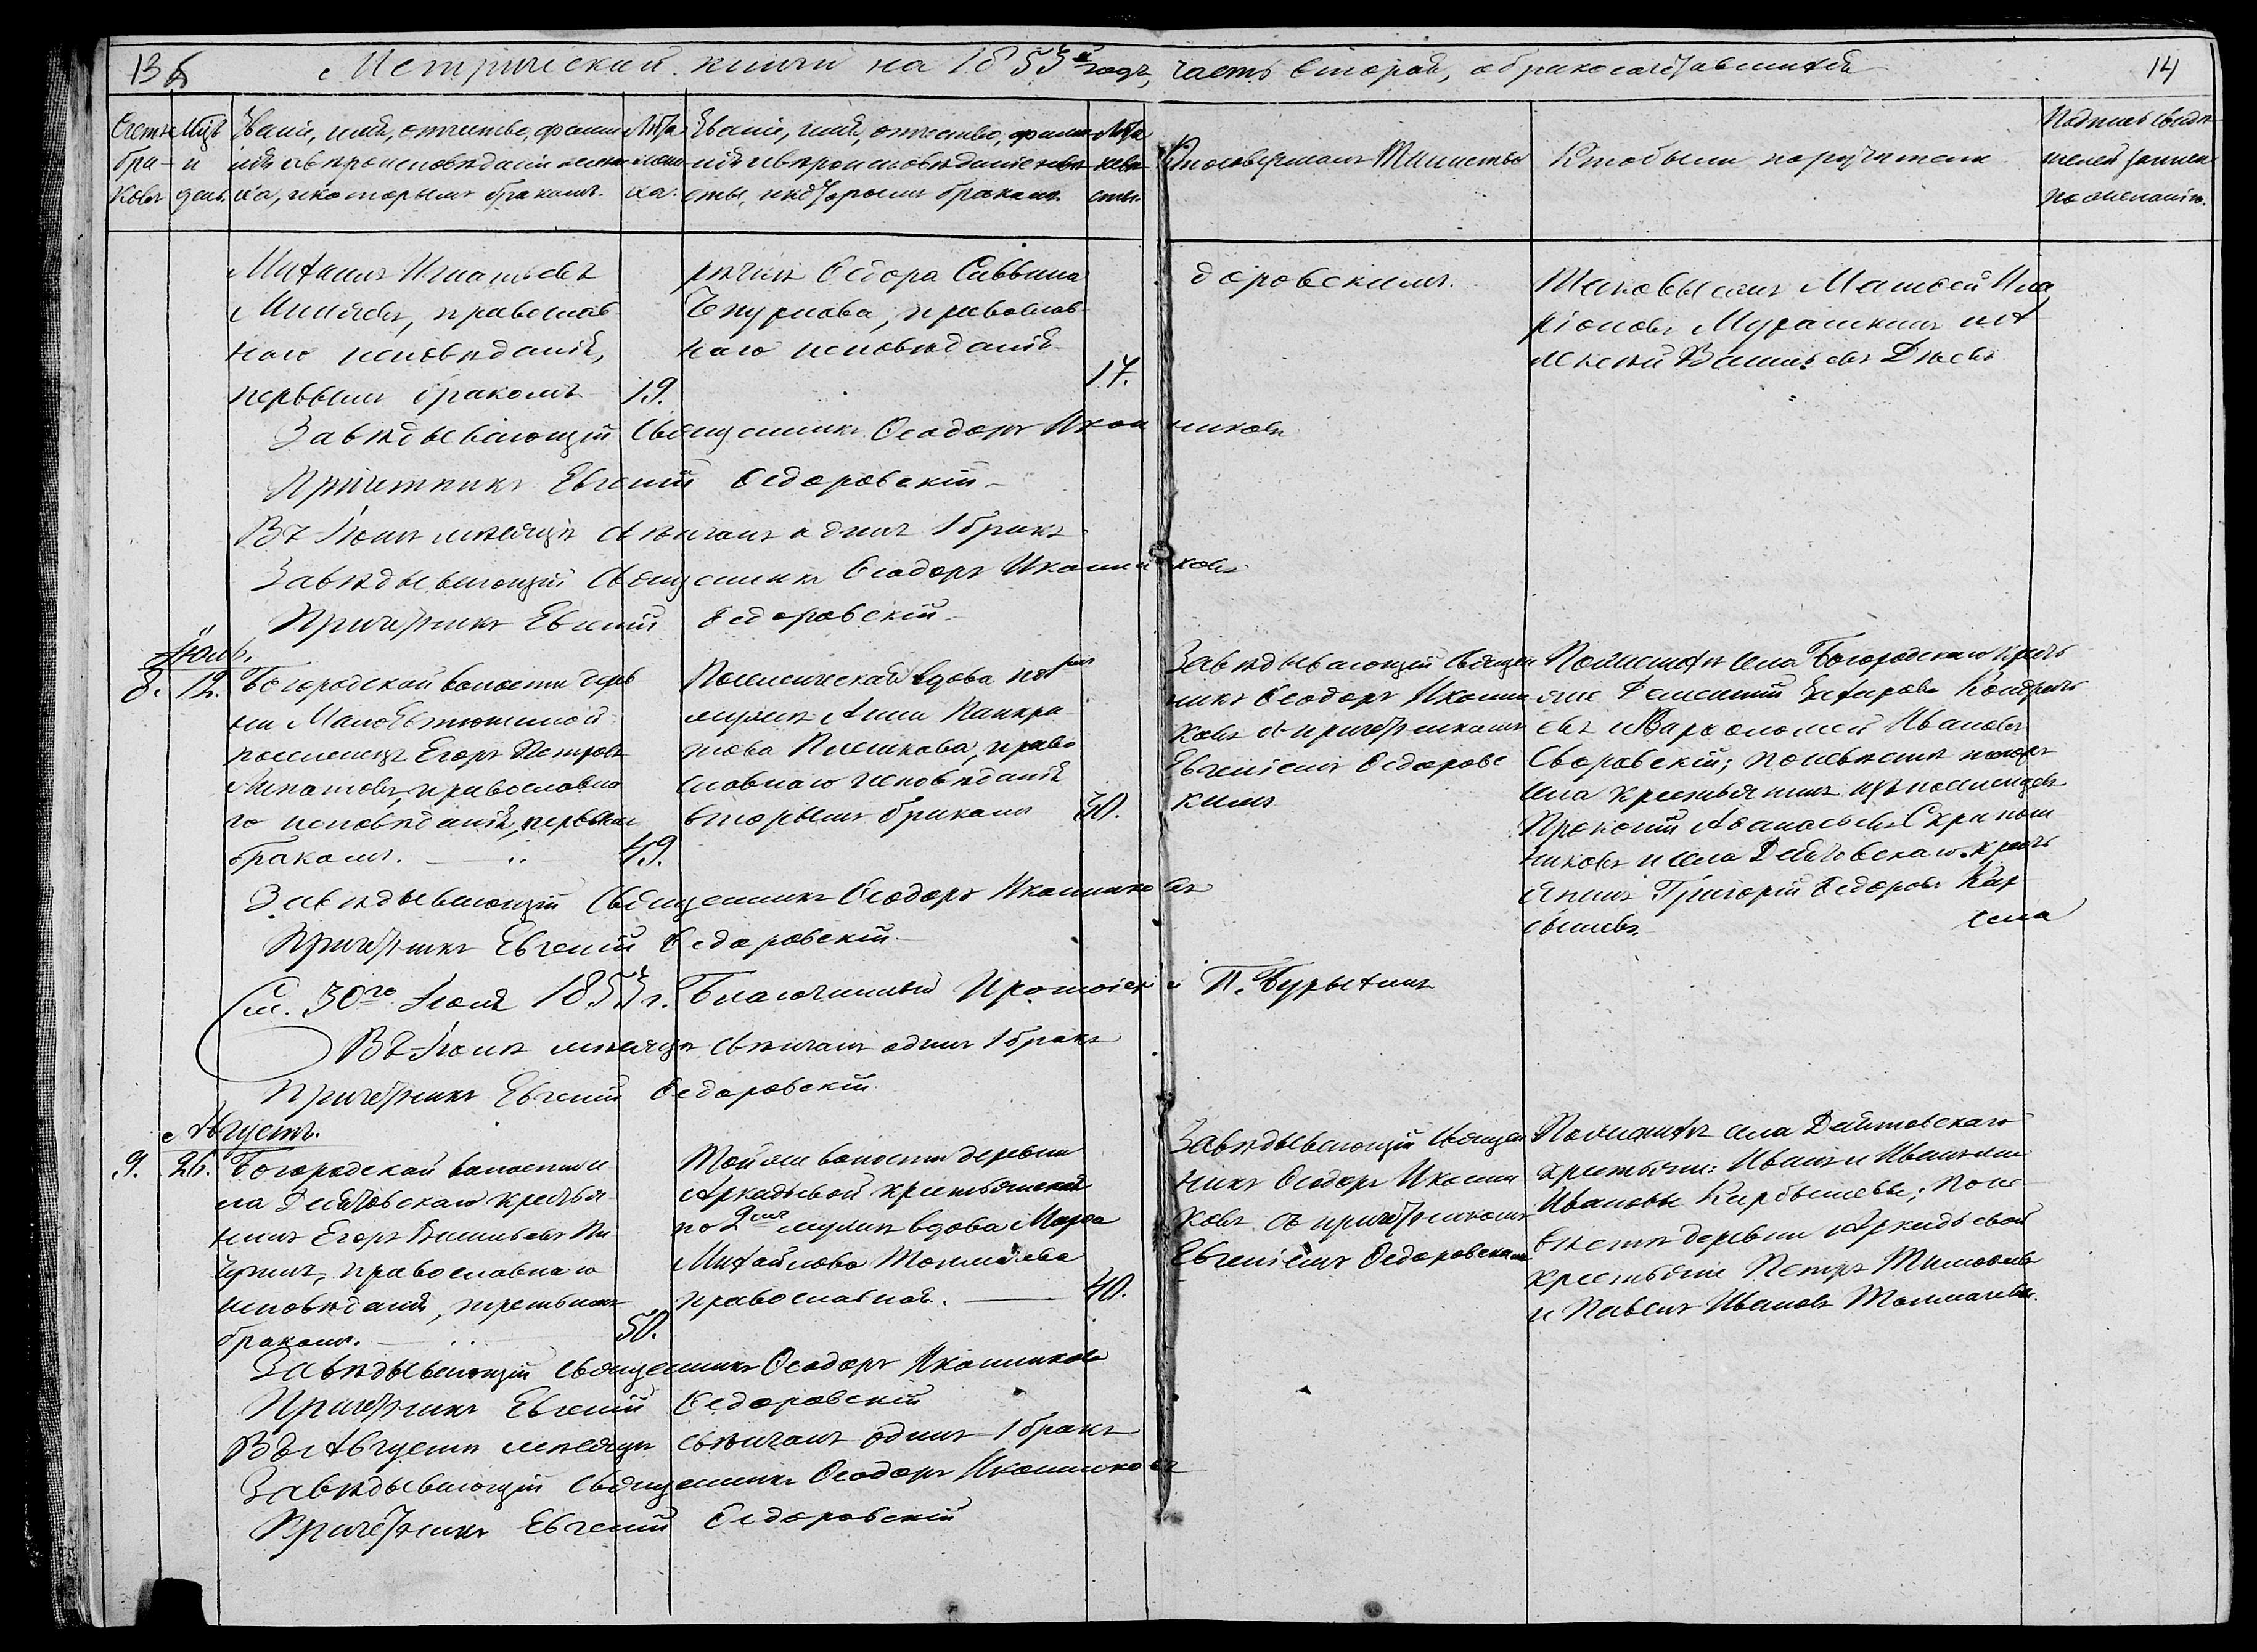 13
Метрической книги на 1853й годъ, часть вторая, о бракосочетавшихся
14
Счетъ бра- ковъ
Мцъ и день.
Званіе, имя, отчество, фами
лія и вѣроисповѣданіе жени
ха, и которымъ бракомъ.
Лѣта жени
ха.
Званіе, имя, отчество, фами
лія и вѣроисповѣданіе невѣ
сты, и которымъ бракомъ.
Лѣта
невѣ
сты.
Кто совершалъ Таинство
Кто были поручители
Подпись свидѣ
телей записи
по желанію.
Михаилъ Игнатьевъ
Миняевъ, православ
наго исповѣданія,
первымъ бракомъ 19.
рѣчки Ѳедора Саввина
Чепурнова, православ
наго исповѣданія
17.
доровскимъ.
Таковымъ Матвей Ила
ріоновъ Мурашкинъ и А
лексѣй Васильевъ Дюевъ
Завѣдывающій Священникъ Ѳеодоръ Иконниковъ
Причетникъ Евгеній Ѳедоровскій
Въ Іюнѣ мѣсяцѣ свѣнчанъ одинъ 1 бракъ
Завѣдывающій Священникъ Ѳеодоръ Иконниковъ
Причетникъ Евгеній Ѳедоровскій
Іюль.
8. 12. Богородской волости дерев
ни Мало
поселенецъ Егоръ Петровъ
Игнатовъ, православна
го исповѣданія, первымъ
бракомъ. 49.
Поселенческая вдова по 1мъ
мужѣ Анна Панкра
това Плешкова, право
славнаго исповѣданія
вторымъ бракомъ 30.
Завѣдывающій Священ
никъ Ѳеодоръ Иконни
ковъ съ причетникомъ
Евгеніемъ Ѳедоровс
кимъ
По женихѣ села Богородскаго кресть
яне Дементій Захаровъ Кондрать
евъ и Варѳоломей Ивановъ
Своровскій; по невѣстѣ тогожъ
села крестьянинъ изъ поселенцевъ
Прокопій Аѳанасьевъ Скрипни
никовъ и села Десятовскаго кресть
янинъ Григорій Ѳедоровъ Кар
бышевъ. села
Завѣдывающій Священникъ Ѳеодоръ Иконниковъ
Причетникъ Евгеній Ѳедоровскій
См. 30го Іюля 1853 г. Благочинный Протоіерей П. Бурыхинъ
Въ Іюлѣ мѣсяцѣ свѣнчанъ одинъ 1 бракъ
Причетникъ Евгеній Ѳедоровскій
Августъ.
9. 26. Богородской волости се
ла Десятовскаго крестья
нинъ Егоръ Васильевъ Пи
чугинъ, православнаго
исповѣданія, третьимъ
бракомъ. 50.
Той же волости деревни
Аркадьевой крестьянская
по 2мъ мужѣ вдова Марѳа
Михайлова Толмачева
православная. 40.
Завѣдывающій Священ
никъ Ѳеодоръ Иконни
ковъ съ причетникомъ
Евгеніемъ Ѳедоровскимъ
По женихѣ села Десятовскаго
крестьяне: Иванъ и Иванъ
Ивановы Карбышевы; по не
вѣстѣ деревни Аркадьевой
крестьяне Петръ Тимоѳеевъ
и Павелъ Ивановъ Толмачевы.
Завѣдывающій Священникъ Ѳеодоръ Иконниковъ
Причетникъ Евгеній Ѳедоровскій
Въ Августѣ мѣсяцѣ свѣнчанъ одинъ 1 бракъ
Завѣдывающій Священникъ Ѳеодоръ Иконниковъ
Причетникъ Евгеній Ѳедоровскій